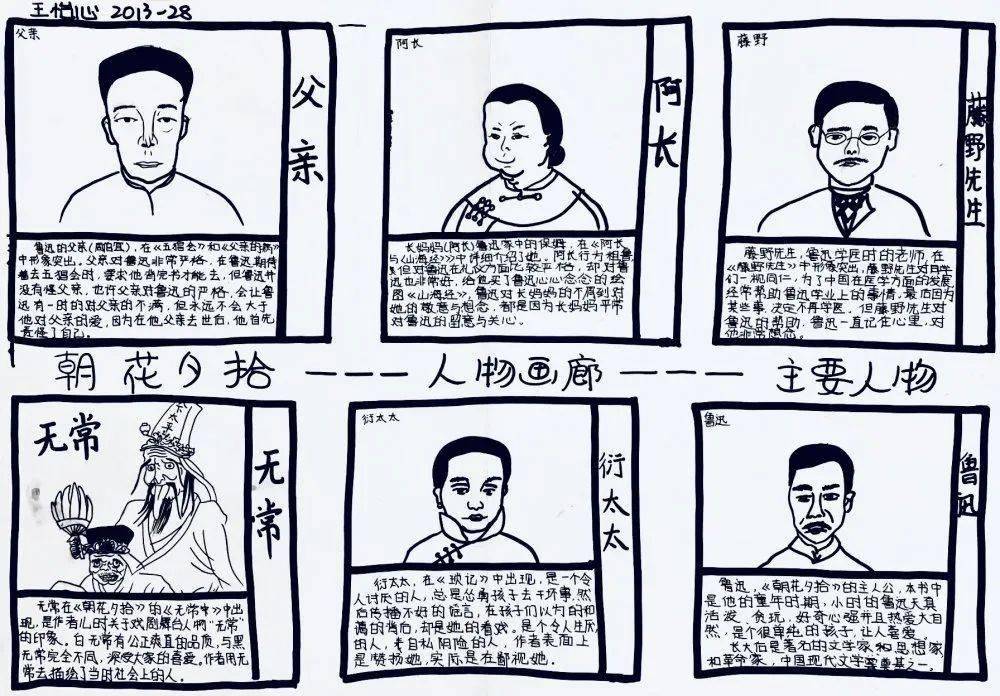 王怡心 2013-28
父亲
父亲
鲁迅的父亲(周伯宜),在《五猖会》和《父亲的病》
中形象突出。父亲对鲁迅非常严格,在鲁迅期待
着去五猖会时,要求他背完书才能去,但鲁迅并
没有怪父亲,也许父亲对鲁迅的严格,会让鲁
迅有一时的对父亲的不满,但永远不会大于
他对父亲的爱,因为在他父亲去世后,他首先
责怪了自己。
阿长
阿长
长妈妈(阿长)鲁迅家中的保姆,在《阿长
与《山海经》》中详细介绍了她。阿长行为粗鲁,
但对鲁迅在礼仪方面比较严格,却对鲁
迅也非常好,给他买了鲁迅心心念念的绘
图《山海经》,鲁迅对长妈妈的不周到对
她的敬意与想念,都是因为长妈妈平常
对鲁迅的照意与关心。
藤野
藤野先生
藤野先生,鲁迅学医时的老师,在
《藤野先生》中形象突出,藤野先生对同学
们一视同仁,为了中国在医学方面的发展,
经常帮助鲁迅学业上的事情,最而因为
某些事,决定不再学医。但藤野先生对
鲁迅的帮助,鲁迅一直记在心里,对
他非常想念。
朝花夕拾———人物画廊———主要人物
无常
无常
无常在《朝花夕拾》的《无常》中出
现,是作者儿时关于戏剧舞台人物“无常”
的印象。白无常有公正爽直的品质,与黑
无常完全不同,深受大家的喜爱。作者用无
常去描绘了当时社会上的人。
衍太太
衍太太
衍太太,在《琐记》中出现,是一个令
人讨厌的人,总是怂恿孩子去干坏事,然
后传播不好的谣言,在孩子们以为的和
蔼的背后,却是她的看戏。是个令人生厌
的人,自私阴险的人,作者表面上
是赞扬她,实际是在鄙视她。
鲁迅
鲁迅
鲁迅,《朝花夕拾》的主人公,本书中
是他的童年时期,小时的鲁迅天真
活波 贪玩,好奇心强并且热爱大自
然,是个很单纯的孩子,让人喜爱。
长大后是著名的文学家和思想家
和革命家,中国现代文学奠基之一。